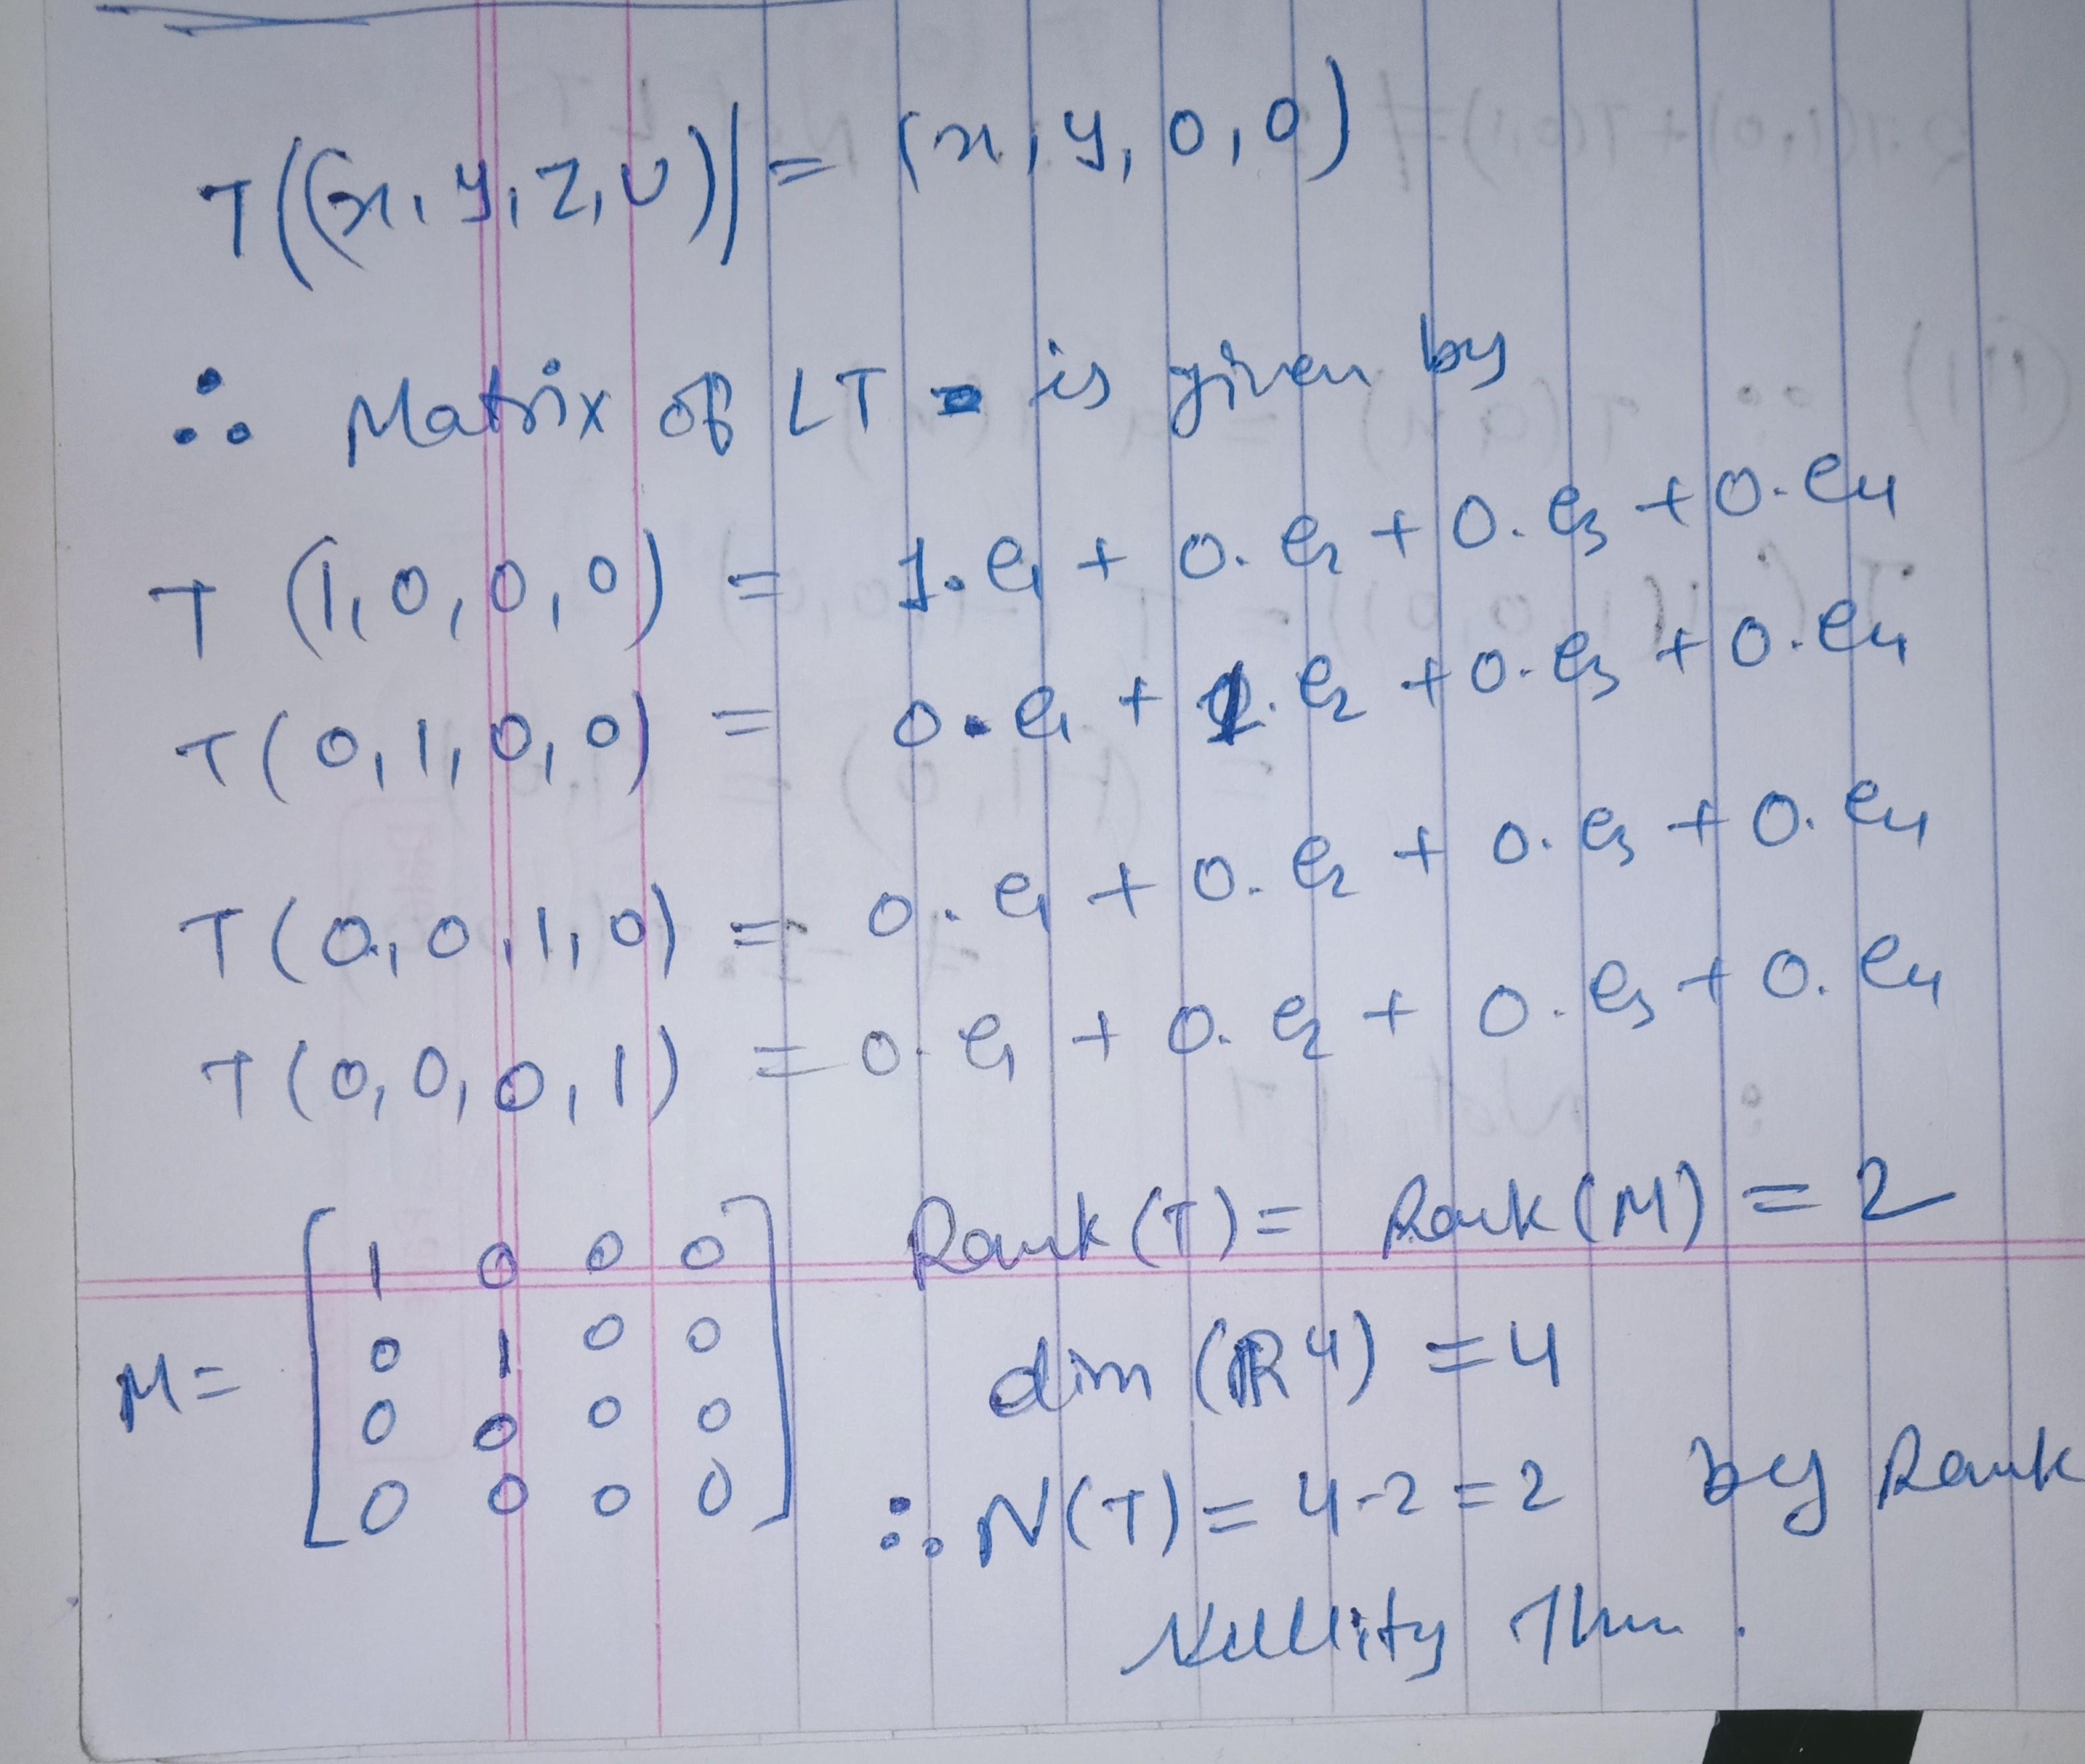 T((x, y, z, u)) = (x, y, 0, 0)
∴ Matrix of LT is given by
T (1, 0, 0, 0) = 1.e1 + 0.e2 + 0.e3 + 0.e4
T(0, 1, 0, 0) = 0.e1 + 1.e2 + 0.e3 + 0.e4
T(0, 0, 1, 0) = 0.e1 + 0.e2 + 0.e3 + 0.e4
T(0, 0, 0, 1) = 0.e1 + 0.e2 + 0.e3 + 0.e4
M = [1 0 0 0
0 1 0 0
0 0 0 0
0 0 0 0]
Rank(T) = Rank(M) = 2
dim (ℝ4) = 4
∴ N(T) = 4-2 = 2 by Rank
Nullity Thm.